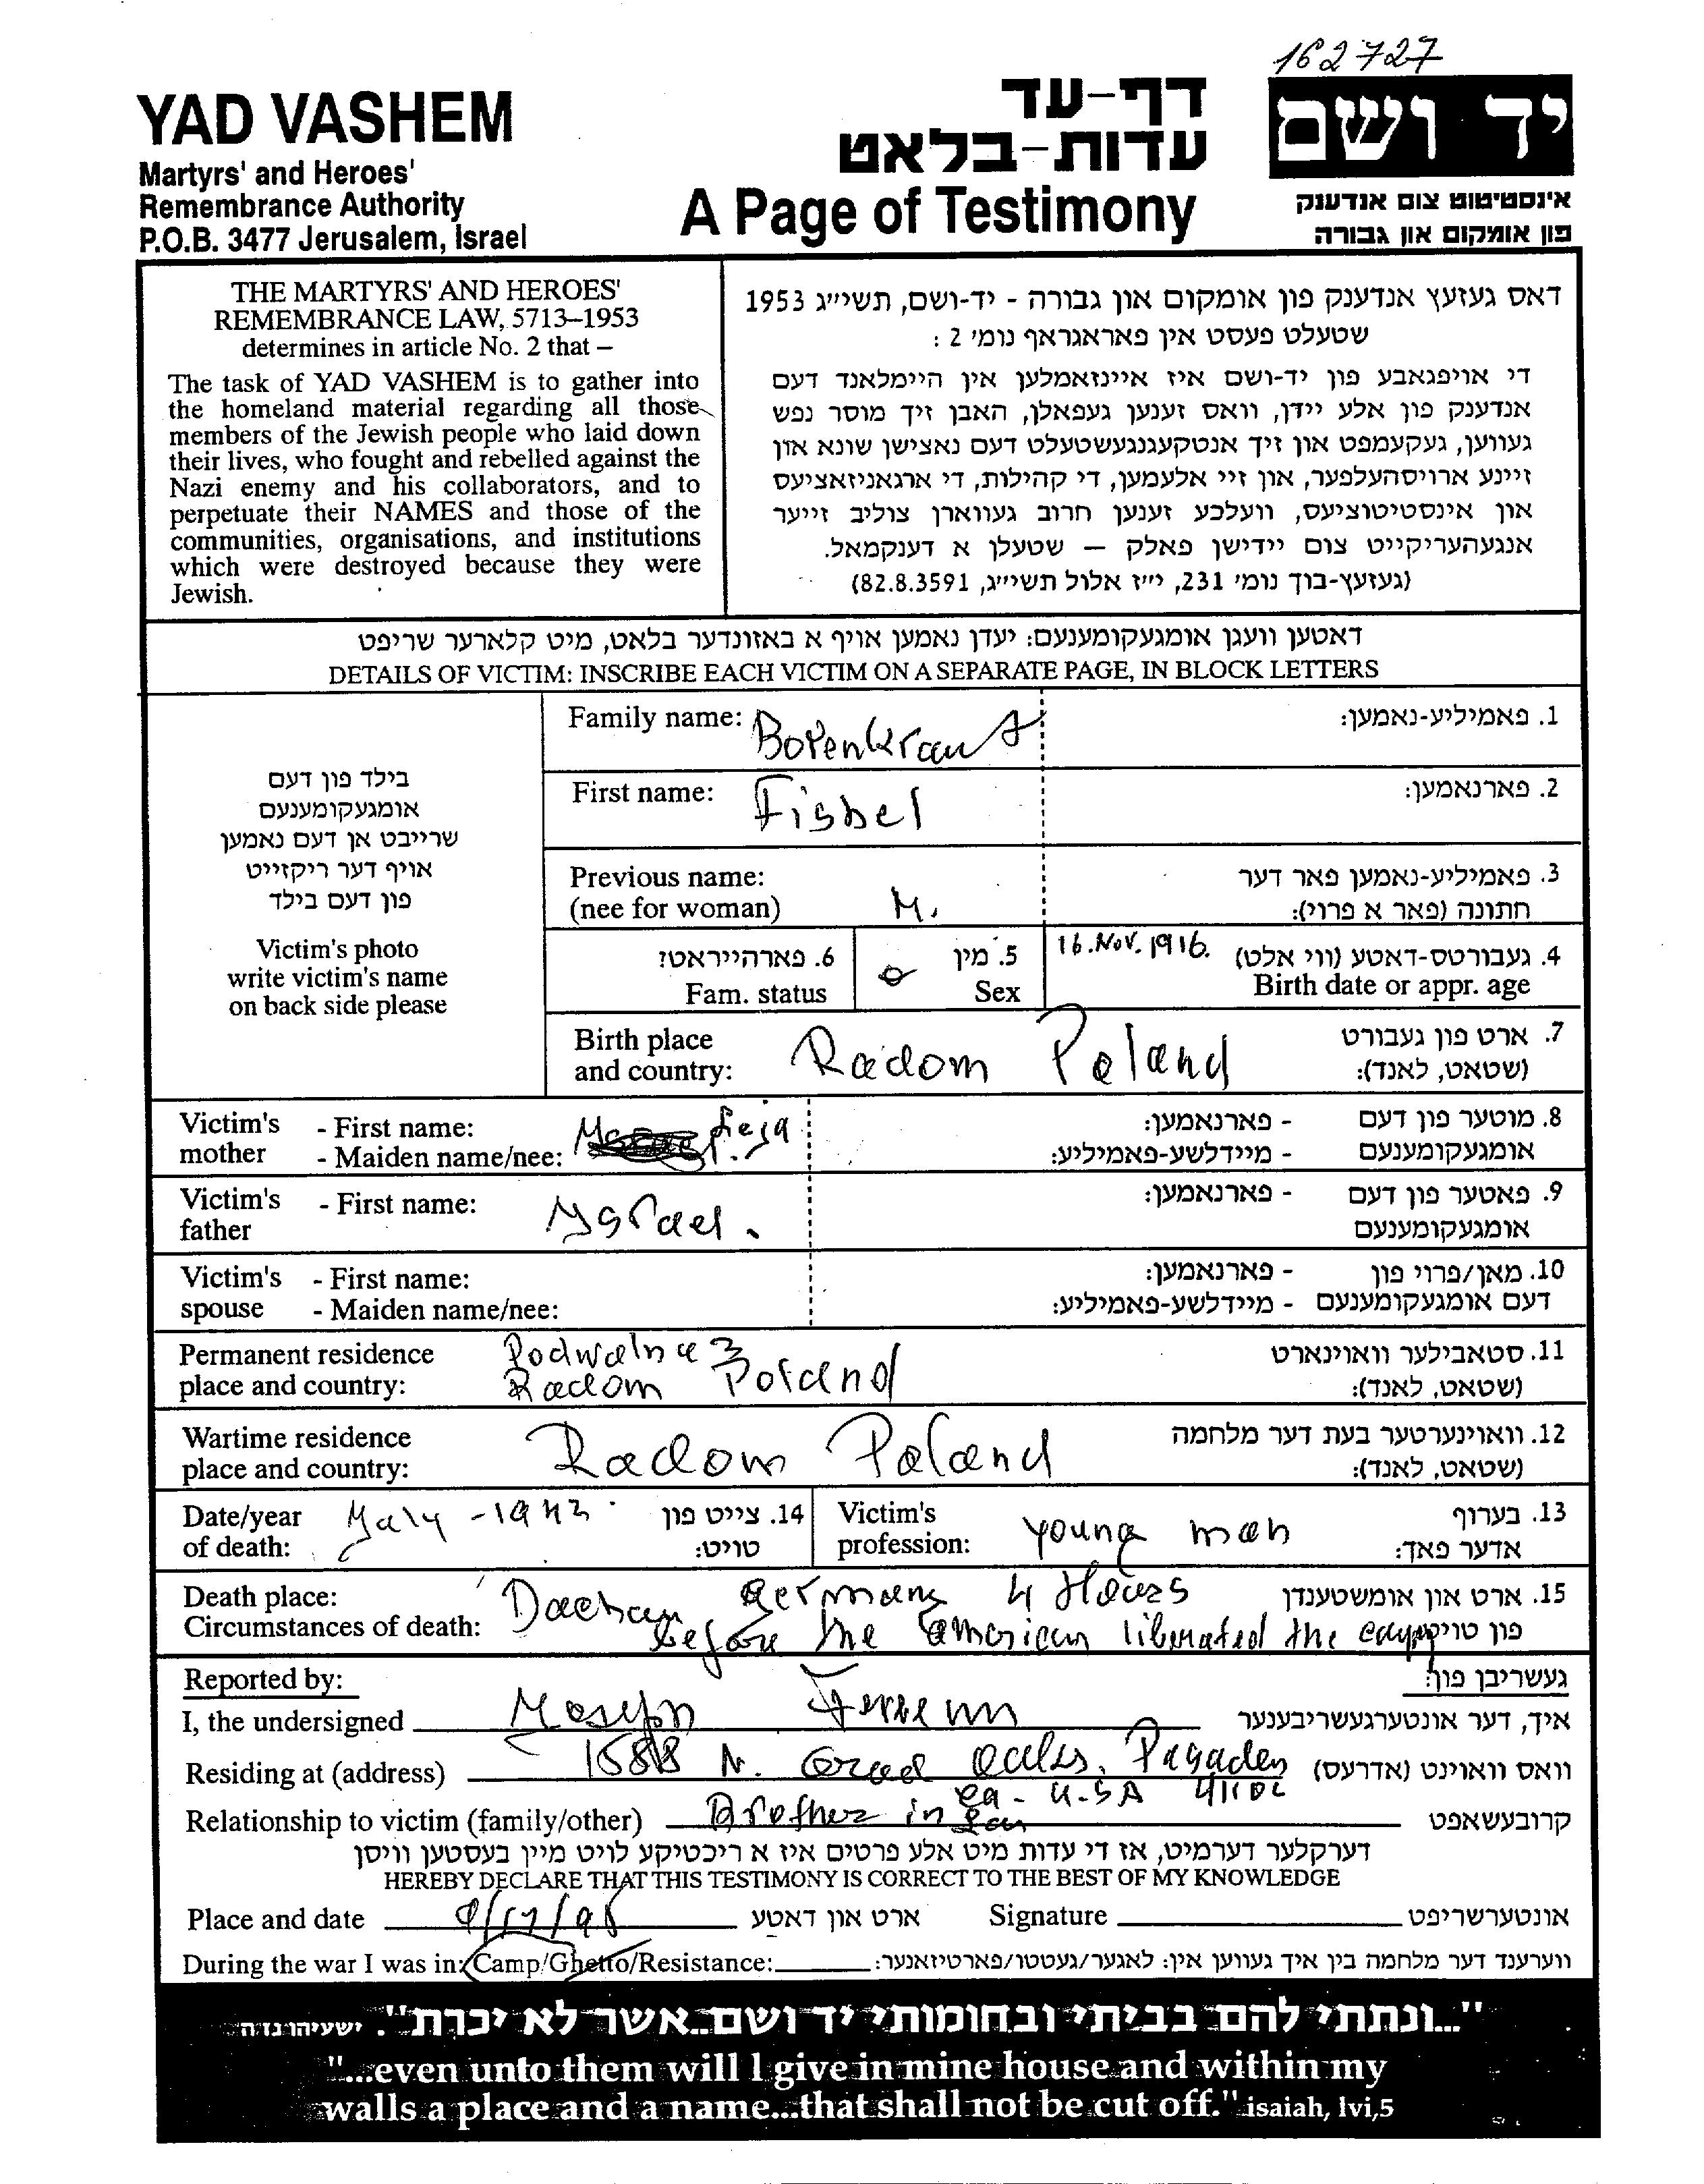 162727
YAD VASHEM
Martyrs' and Heroes'
Remembrance Authority
P.O.B. 3477 Jerusalem, Israel
דף-עד
עדות-בלאט
A Page of Testimony
יד ושם
אינסטיטוט צום אנדענק
פון אומקום און גבורה
THE MARTYRS' AND HEROES'
REMEMBRANCE LAW, 5713–1953
determines in article No. 2 that –
The task of YAD VASHEM is to gather into
the homeland material regarding all those
members of the Jewish people who laid down
their lives, who fought and rebelled against the
Nazi enemy and his collaborators, and to
perpetuate their NAMES and those of the
communities, organisations, and institutions
which were destroyed because they were
Jewish.
דאס געזעץ אנדענק פון אומקום און גבורה - יד-ושם, תשי״ג 1953
שטעלט פעסט אין פאראגראף נומ׳ 2 :
די אויפגאבע פון יד-ושם איז איינזאמלען אין היימלאנד דעם
אנדענק פון אלע יידן, וואס זענען געפאלן, האבן זיך מוסר נפש
געווען, געקעמפט און זיך אנטקעגנגעשטעלט דעם נאצישן שונא און
זיינע ארויסהעלפער, און זיי אלעמען, די קהילות, די ארגאניזאציעס
און אינסטיטוציעס, וועלכע זענען חרוב געווארן צוליב זייער
אנגעהעריקייט צום יידישן פאלק — שטעלן א דענקמאל.
(געזעץ-בוך נומ׳ 231, י״ז אלול תשי״ג, 82.8.3591)
דאטען וועגן אומגעקומענעם: יעדן נאמען אויף א באזונדער בלאט, מיט קלארער שריפט
DETAILS OF VICTIM: INSCRIBE EACH VICTIM ON A SEPARATE PAGE, IN BLOCK LETTERS
בילד פון דעם
אומגעקומענעם
שרייבט אן דעם נאמען
אויף דער ריקזייט
פון דעם בילד
Victim's photo
write victim's name
on back side please
Family name: 1. פאמיליע-נאמען:
First name: Fishel 2. פארנאמען:
Previous name: 3. פאמיליע-נאמען פאר דער
(nee for woman) M. חתונה (פאר א פרוי):
6. פארהייראט? 5. מין 16.Nov.1916. 4. געבורטס-דאטע (ווי אלט)
Fam. status Sex Birth date or appr. age
Birth place 7. ארט פון געבורט
and country: Radom Poland (שטאט, לאנד):
Victim's - First name: - פארנאמען: 8. מוטער פון דעם
mother - Maiden name/nee: - מיידלשע-פאמיליע: אומגעקומענעם
Victim's - First name: - פארנאמען: 9. פאטער פון דעם
father Ysrael. אומגעקומענעם
Victim's - First name: - פארנאמען: 10. מאן/פרוי פון
spouse - Maiden name/nee: - מיידלשע-פאמיליע: דעם אומגעקומענעם
Permanent residence Podwalna 3 11. סטאבילער וואוינארט
place and country: Radom Poland (שטאט, לאנד):
Wartime residence 12. וואוינערטער בעת דער מלחמה
place and country: Radom Poland (שטאט, לאנד):
Date/year 14. צייט פון
of death: טויט:
Victim's 13. בערוף
profession: young man אדער פאך:
Death place: Germany 4 Hours 15. ארט און אומשטענדן
Circumstances of death: before the american liberated the camp פון טויט
Reported by: געשריבן פון:
I, the undersigned איך, דער אונטערגעשריבענער
Residing at (address) 1588 N. וואס וואוינט (אדרעס)
Ca- U.S.A
Relationship to victim (family/other) Brother in Law קרובעשאפט
דערקלער דערמיט, אז די עדות מיט אלע פרטים איז א ריכטיקע לויט מיין בעסטען וויסן
HEREBY DECLARE THAT THIS TESTIMONY IS CORRECT TO THE BEST OF MY KNOWLEDGE
Place and date ארט און דאטע Signature אונטערשריפט
During the war I was in: Camp/Ghetto/Resistance: ווערענד דער מלחמה בין איך געווען אין: לאגער/געטטו/פארטיזאנער:
"...ונתתי להם בביתי ובחומותי יד ושם...אשר לא יכרת". ישעיהו נו ה
"...even unto them will I give in mine house and within my
walls a place and a name...that shall not be cut off." isaiah, lvi,5